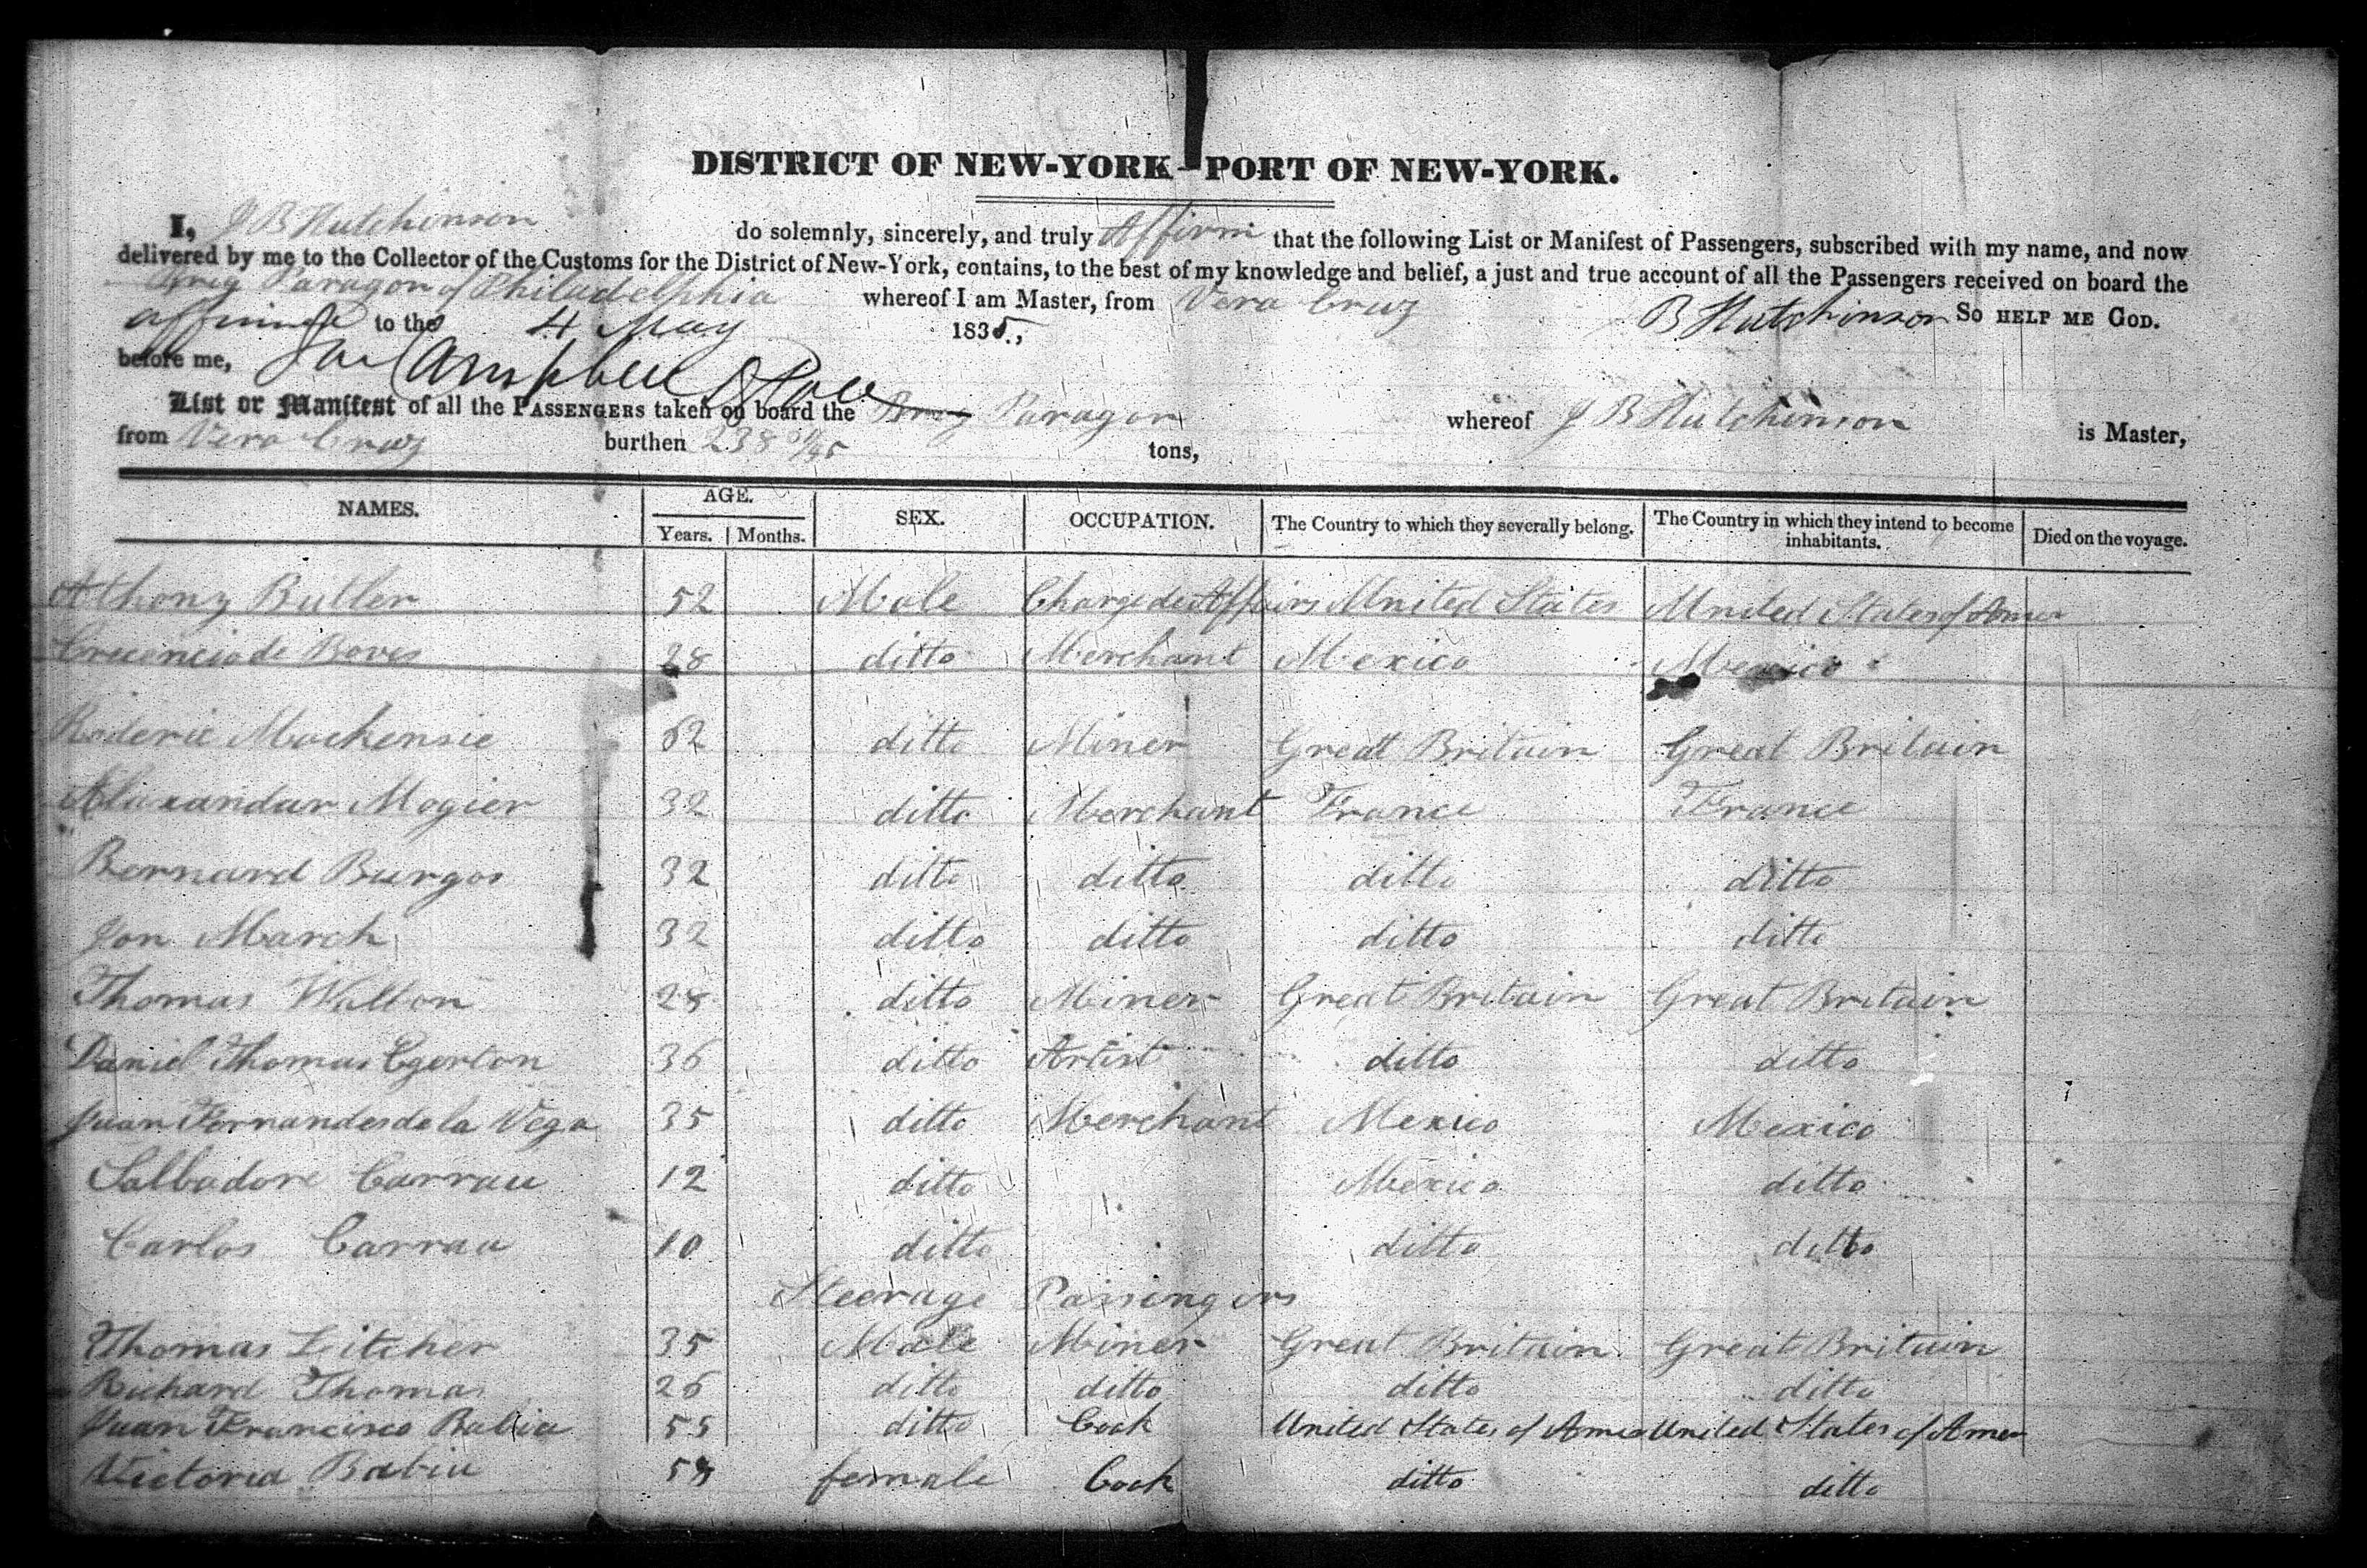 DISTRICT OF NEW-YORK—PORT OF NEW-YORK.
I, J B Hutchinson do solemnly, sincerely, and truly Affirm that the following List or Manifest of Passengers, subscribed with my name, and now
delivered by me to the Collector of the Customs for the District of New-York, contains, to the best of my knowledge and belief, a just and true account of all the Passengers received on board the
Brig Paragon of Philadelphia whereof I am Master, from Vera Cruz
affirmed to the 4 May 1835, B Hutchinson So HELP ME GOD.
before me, Campbell
List or Manifest of all the PASSENGERS taken on board the Brig Paragon whereof J B Hutchinson is Master,
from Vera Cruz burthen 238 /95 tons,
NAMES. AGE. SEX. OCCUPATION. The Country to which they severally belong. The Country in which they intend to become inhabitants. Died on the voyage.
Years. Months.
Athony Butler 52 Male Charge des Affairs United States United States of Amer
de Boves 28 ditto Merchant Mexico Mexico
Roderic Mackensie 62 ditto Miner Great Britain Great Britain
Alaxandar Mogier 32 ditto Merchant France France
Bernard Burgos 32 ditto ditto ditto ditto
Jon March 32 ditto ditto ditto ditto
Thomas Walton 28 ditto Miner Great Britain Great Britain
Daniel Thomas Egerton 36 ditto Artist ditto ditto
Juan Fernandes de la Vega 35 ditto Merchant Mexico Mexico
Salbadore Carrau 12 ditto Mexico ditto
Carlos Carrau 10 ditto ditto ditto
Steerage Passengers
Thomas Litcher 35 Male Miner Great Britain Great Britain
Richard Thomas 26 ditto ditto ditto ditto
Juan Francisco Babia 55 ditto Cook United States of Ame United States of Amer
Victoria Babia 58 female Cook ditto ditto